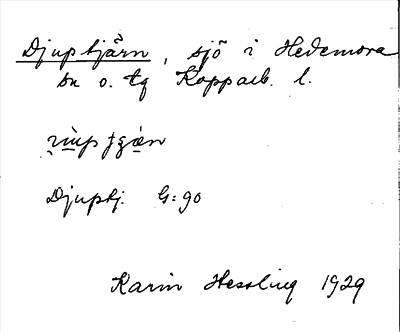 Djuptjärn, sjö i Hedemora
sn o. tg Kopparb. l.
Djuptj. G:90
Karin Hessling 1929